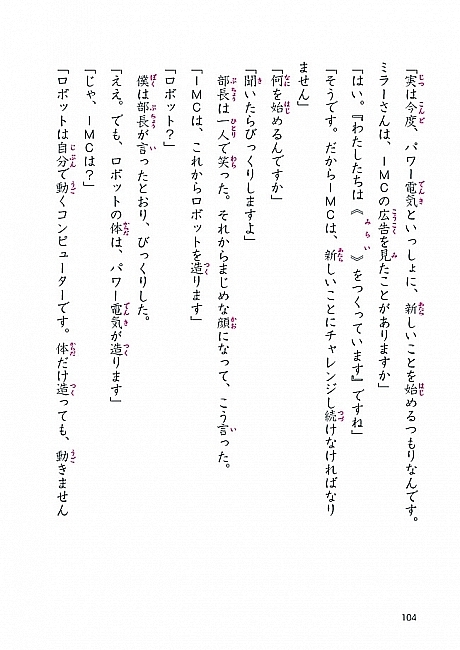 「実は今度、パワー電気といっしょに、新しいことを始めるつもりなんです。
ミラーさんは、IMCの広告を見たことがありますか」
「はい。『わたしたちは《みらい》をつくっています』ですね」
「そうです。だからIMCは、新しいことにチャレンジし続けなければなり
ません」
「何を始めるんですか」
「聞いたらびっくりしますよ」
部長は一人で笑った。それからまじめな顔になって、こう言った。
「IMCは、これからロボットを造ります」
「ロボット?」
僕は部長が言ったとおり、びっくりした。
「ええ。でも、ロボットの体は、パワー電気が造ります」
「じゃ、IMCは?」
「ロボットは自分で動くコンピューターです。体だけ造っても、動きません
104